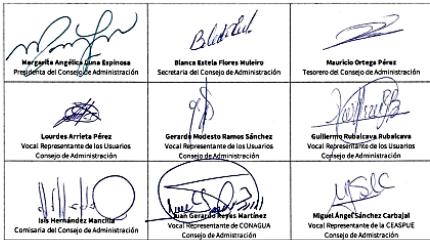 Margarita Angélica Luna Espinosa
Presidenta del Consejo de Administración
Blanca Estela Flores Muleiro
Secretaria del Consejo de Administración
Mauricio Ortega Pérez
Tesorero del Consejo de Administración
Lourdes Arrieta Pérez
Vocal Representante de los Usuarios
Consejo de Administración
Gerardo Modesto Ramos Sánchez
Vocal Representante de los Usuarios
Consejo de Administración
Guillermo Rubalcava Rubalcava
Vocal Representante de los Usuarios
Consejo de Administración
Isis Hernández Mancilla
Comisaria del Consejo de Administración
Juan Gerardo Reyes Martínez
Vocal Representante de CONAGUA
Consejo de Administración
Miguel Ángel Sánchez Carbajal
Vocal Representante de la CEASPUE
Consejo de Administración